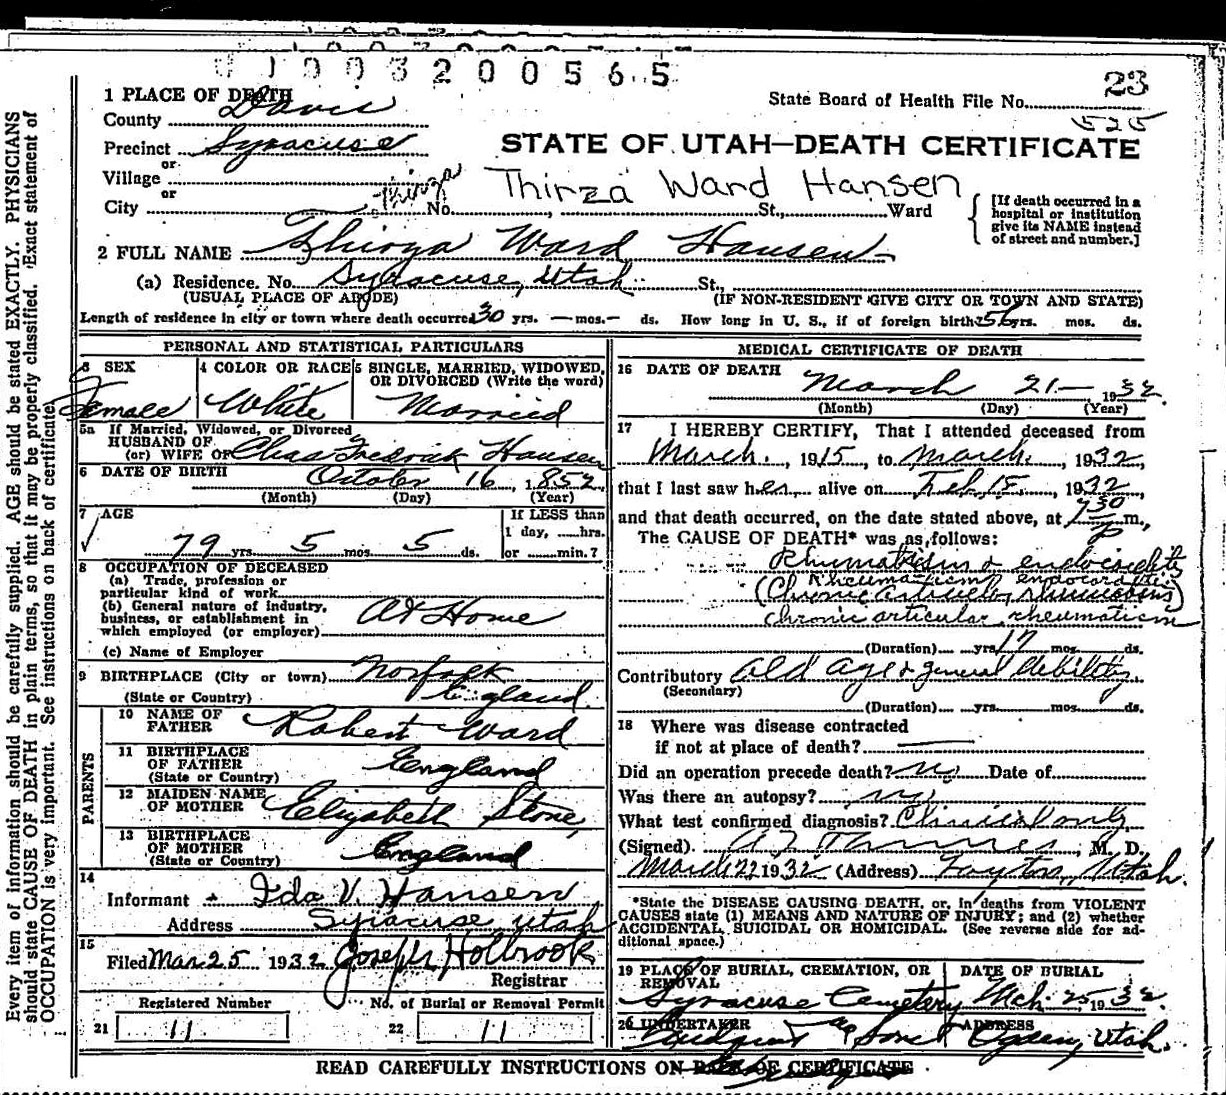 0 1 9 0 3 2 0 0 5 6 5
23
State Board of Health File No.
525
1 PLACE OF DEATH
County Davis
Precinct Syracuse
or
Village
or
City Thirza No. St., Ward
STATE OF UTAH—DEATH CERTIFICATE
Thirza Ward Hansen
[If death occurred in a
hospital or institution
give its NAME instead
of street and number.]
2 FULL NAME Thirza Ward Hansen
(a) Residence. No. Syracuse, Utah St.,
(USUAL PLACE OF ABODE) (IF NON-RESIDENT GIVE CITY OR TOWN AND STATE)
Length of residence in city or town where death occurred 30 yrs. — mos. — ds. How long in U. S., if of foreign birth? 56 yrs. mos. ds.
PERSONAL AND STATISTICAL PARTICULARS
3 SEX
Female
4 COLOR OR RACE
White
5 SINGLE, MARRIED, WIDOWED,
OR DIVORCED (Write the word)
Married
5a If Married, Widowed, or Divorced
HUSBAND OF
(or) WIFE OF Chas Fredrick Hansen
6 DATE OF BIRTH October 16, 1852
(Month) (Day) (Year)
7 AGE
79 yrs. 5 mos. 5 ds.
If LESS than
1 day, hrs.
or min.?
8 OCCUPATION OF DECEASED
(a) Trade, profession or
particular kind of work
(b) General nature of industry,
business, or establishment in
which employed (or employer) At Home
(c) Name of Employer
9 BIRTHPLACE (City or town) Norfolk
(State or Country) England
PARENTS
10 NAME OF
FATHER Robert Ward
11 BIRTHPLACE
OF FATHER England
(State or Country)
12 MAIDEN NAME
OF MOTHER Elizabeth Stone
13 BIRTHPLACE
OF MOTHER England
(State or Country)
14
Informant Ida V. Hansen
Address Syracuse Utah
15
Filed Mar 25 1932 Joseph Holbrook
Registrar
Registered Number No. of Burial or Removal Permit
21 11 22 11
MEDICAL CERTIFICATE OF DEATH
16 DATE OF DEATH
March 21— 1932
(Month) (Day) (Year)
17 I HEREBY CERTIFY, That I attended deceased from
March, 1915, to March, 1932,
that I last saw her alive on Feb 15, 1932,
and that death occurred, on the date stated above, at 7 30 P m.,
The CAUSE OF DEATH* was as follows:
Rhumatism & endocarditis
Rheumatism endocarditis
(Chronic articular rhumatism)
chronic articular rheumatism
(Duration) yrs. 17 mos. ds.
Contributory Old age & general debility
(Secondary)
(Duration) yrs. mos. ds.
18 Where was disease contracted
if not at place of death?
Did an operation precede death? no Date of
Was there an autopsy? no
What test confirmed diagnosis? Clinical only
(Signed) M. D.
March 22 1932 (Address) Layton, Utah.
*State the DISEASE CAUSING DEATH, or, in deaths from VIOLENT
CAUSES state (1) MEANS AND NATURE OF INJURY; and (2) whether
ACCIDENTAL, SUICIDAL OR HOMICIDAL. (See reverse side for ad-
ditional space.)
19 PLACE OF BURIAL, CREMATION, OR
REMOVAL
Syracuse Cemetery
DATE OF BURIAL
Mch. 25 1932
20 UNDERTAKER ADDRESS
Lindquist & Sons Ogden, Utah.
READ CAREFULLY INSTRUCTIONS ON BACK OF CERTIFICATE
Every item of information should be carefully supplied. AGE should be stated EXACTLY. PHYSICIANS
should state CAUSE OF DEATH in plain terms, so that it may be properly classified. Exact statement of
OCCUPATION is very important. See instructions on back of certificate.